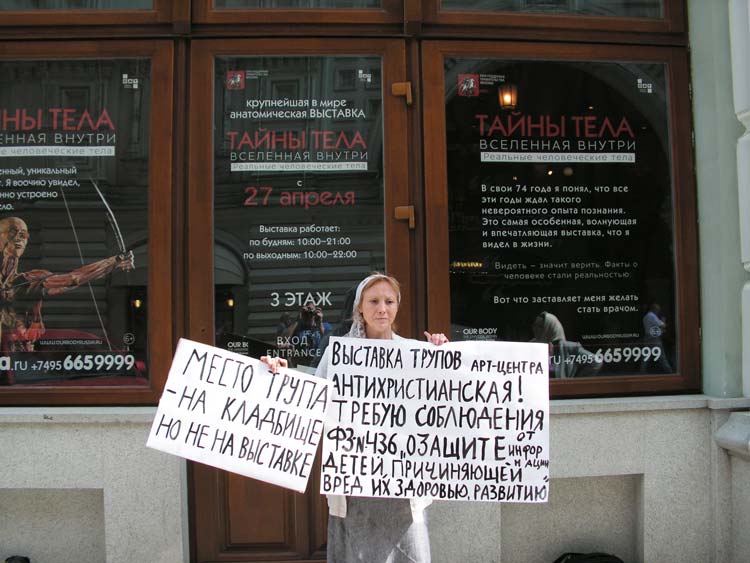 ТАЙНЫ ТЕЛА
ВСЕЛЕННАЯ ВНУТРИ
Реальные человеческие тела
уникальный
Я воочию увидел,
устроено
+7495 6659999
крупнейшая в мире
анатомическая ВЫСТАВКА
ТАЙНЫ ТЕЛА
ВСЕЛЕННАЯ ВНУТРИ
Реальные человеческие тела
с
27 апреля
Выставка работает:
по будням: 10:00-21:00
по выходным: 10:00-22:00
3 ЭТАЖ
ВХОД
ENTRANCE
OUR BODY
ТАЙНЫ ТЕЛА
ВСЕЛЕННАЯ ВНУТРИ
Реальные человеческие тела
В свои 74 года я понял, что все
эти годы ждал такого
невероятного опыта познания.
Это самая особенная, волнующая
и впечатляющая выставка, что я
видел в жизни.
Видеть – значит верить. Факты о
человеке стали реальностью.
Вот что заставляет меня желать
стать врачом.
OUR BODY
WWW.OURBODYRUSSIA.RU
+7495 6659999
МЕСТО ТРУПА
- НА КЛАДБИЩЕ
НО НЕ НА ВЫСТАВКЕ
ВЫСТАВКА ТРУПОВ АРТ-ЦЕНТРА
АНТИХРИСТИАНСКАЯ!
ТРЕБУЮ СОБЛЮДЕНИЯ
ФЗ №436 „О ЗАЩИТЕ ОТ ИНФОРМАЦИИ
ДЕТЕЙ, ПРИЧИНЯЮЩЕЙ
ВРЕД ИХ ЗДОРОВЬЮ, РАЗВИТИЮ"